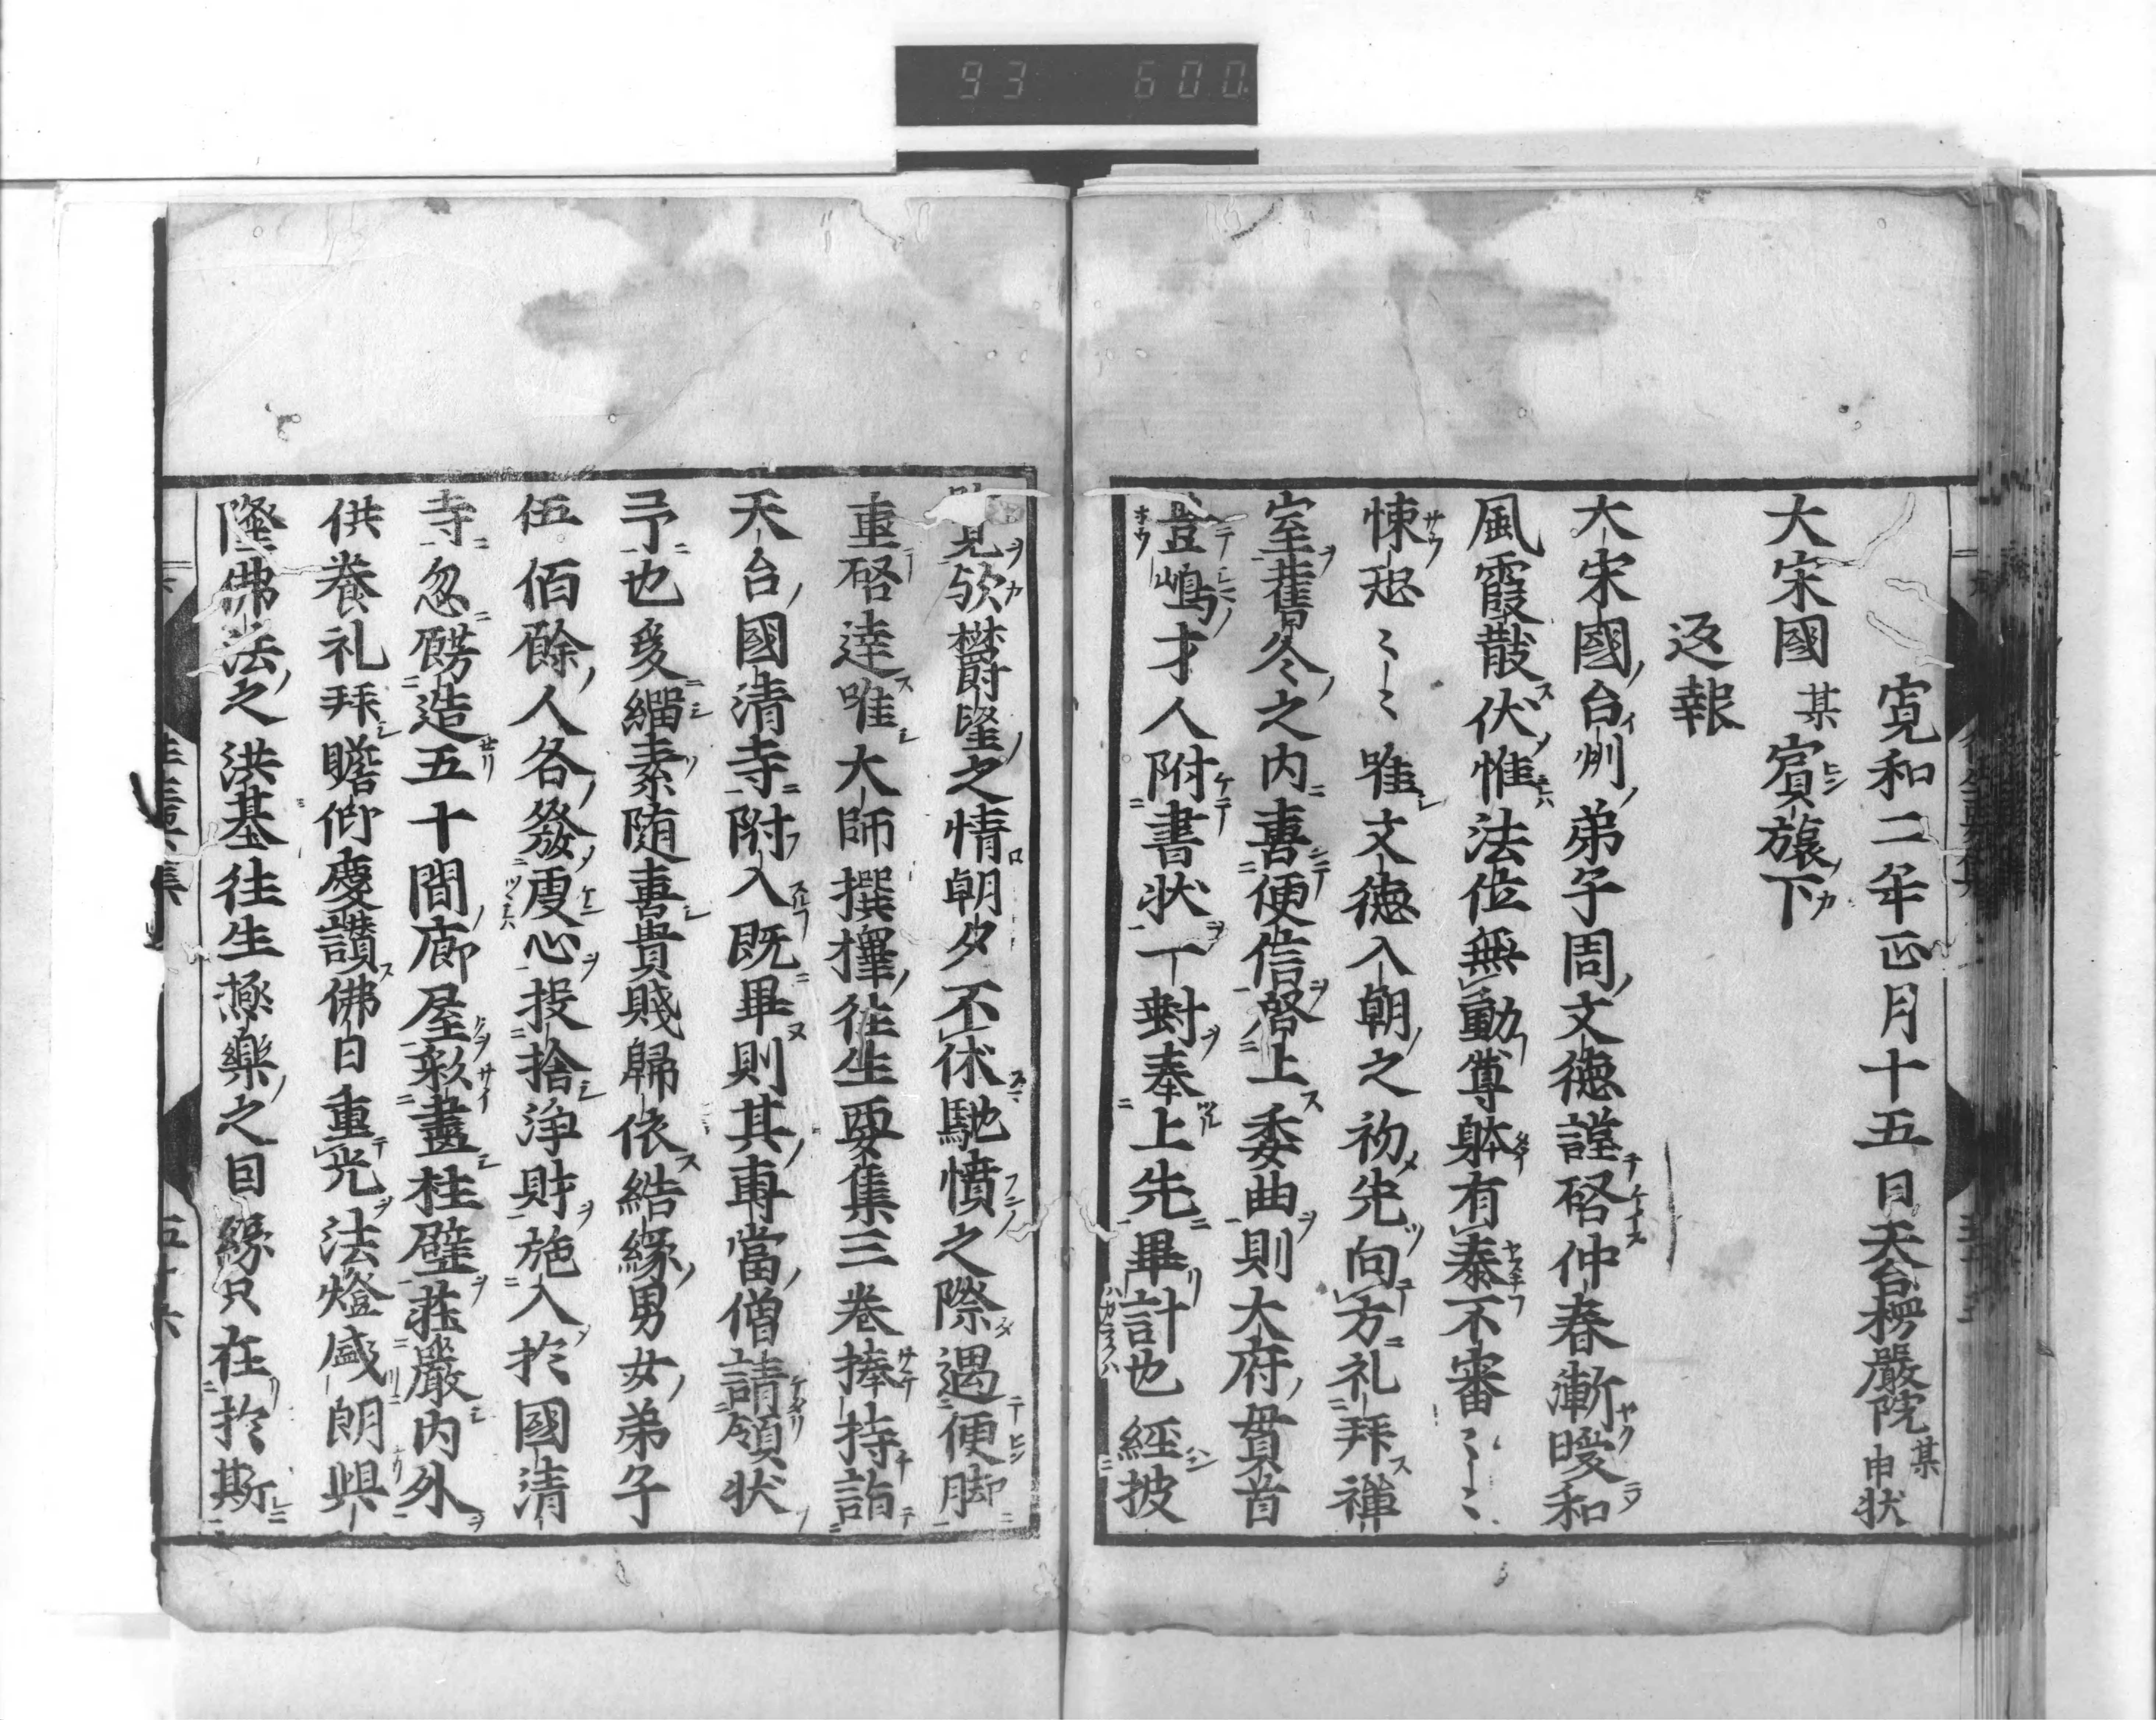 93 600
寛和二年正月十五日天台楞嚴院某申状
大宋國某賓旅下
返報
大宋國台州弟子周文德謹啓仲春漸暖和
風霞散伏惟法位無動尊躰有泰不審〻〻
悚恐〻〻唯文德入朝之初先向方礼拜禪
室舊冬之内喜便信啓上委曲則大府貫首
豊嶋才人附書状一封奉上先畢計也經披
見欤欝隆之情朝夕不休馳憤之際遇便脚
重啓達唯大師撰擇往生要集三巻捧持詣
天台國清寺附入既畢則其專當僧請領状
予也爰緇素随喜貴賤歸依結縁男女弟子
伍佰餘人各發虔心投捨浄財施入於國清
寺忽餝造五十間廊屋彩畫柱壁莊嚴内外
供養礼拜瞻仰慶讃佛日重光法燈盛朗興
隆佛法之洪基往生極樂之因縁只在於斯